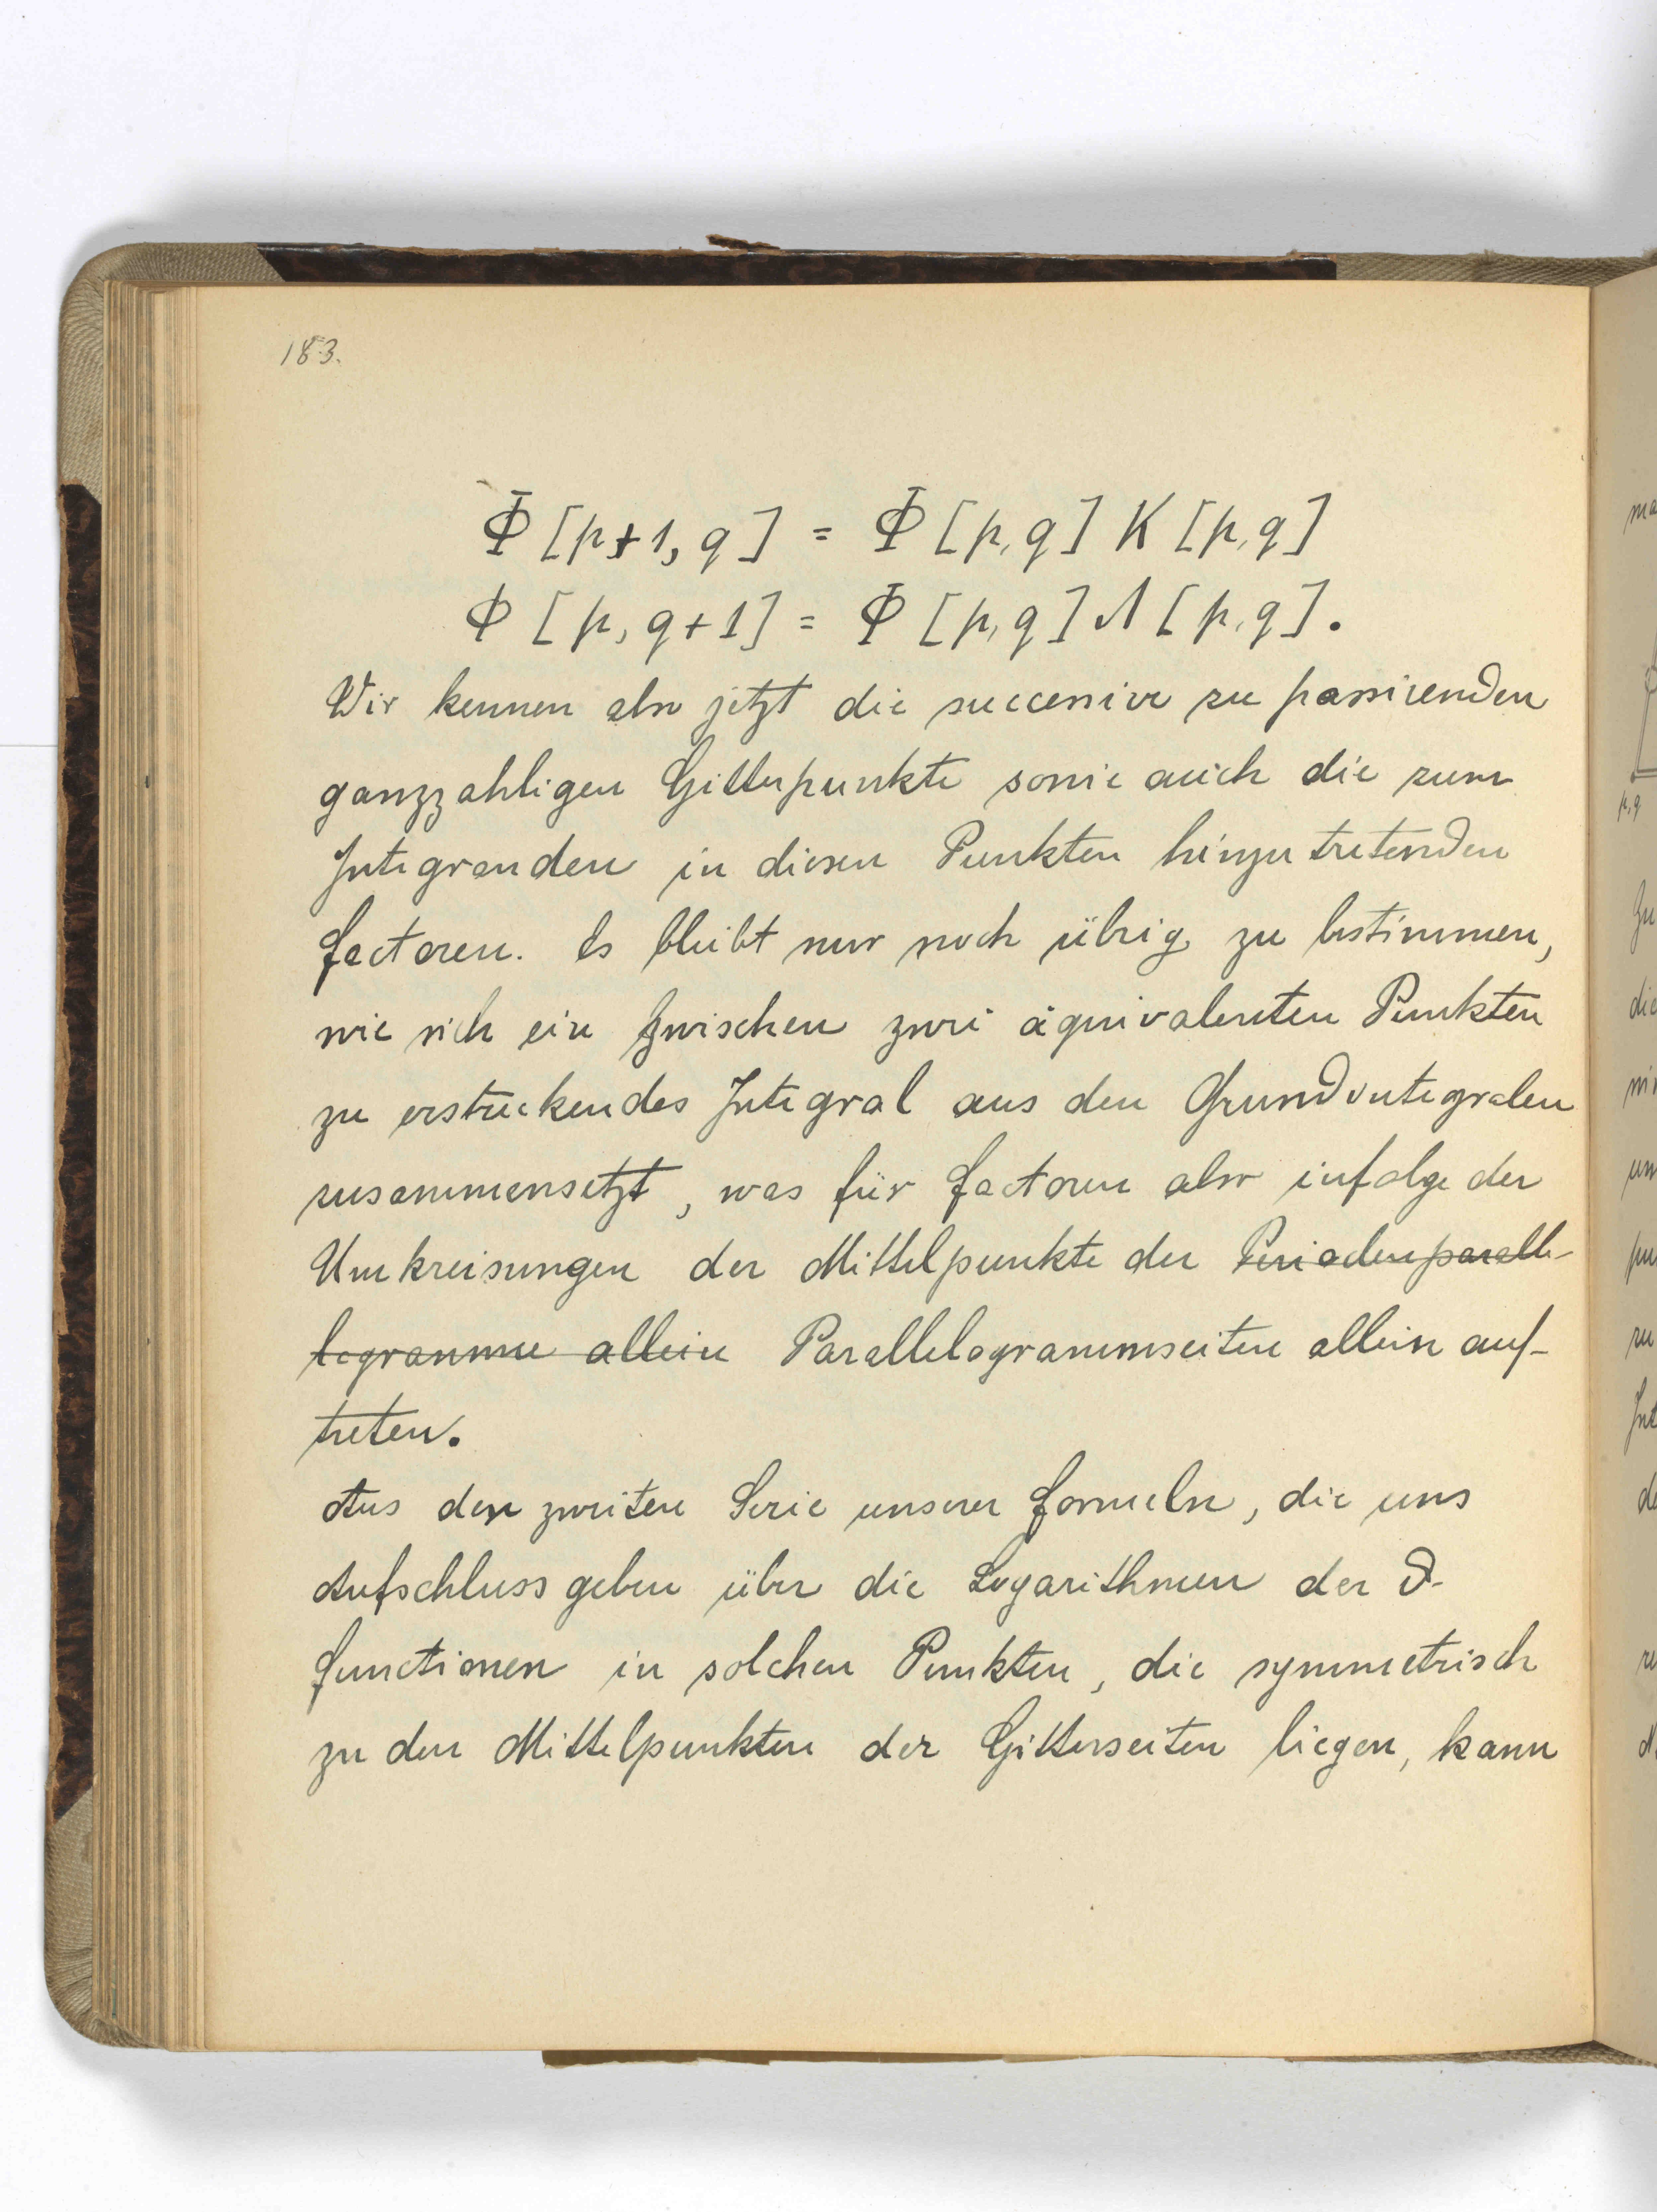 183.
Φ [p+1, q] = Φ [p, q] K [p, q]
Φ [p, q+1] = Φ [p, q] Λ [p, q].
Wir kennen also jetzt die successive zu passirenden
ganzzahligen Gitterpunkte sowie auch die zum
Integranden in diesen Punkten hinzutretenden
Factoren. Es bleibt nur noch übrig zu bestimmen,
wie sich ein zwischen zwei äquivalenten Punkten
zu erstreckendes Integral aus den Grundintegralen
zusammensetzt, was für Factoren also infolge der
Umkreisungen der Mittelpunkte der Periodenparalle-
logramme allein Parallelogrammseiten allein auf-
treten.
Aus der zweiten Serie unserer Formeln, die uns
Aufschluss geben über die Logarithmen der ϑ-
functionen in solchen Punkten, die symmetrisch
zu den Mittelpunkten der Gitterseiten liegen, kann
p,q